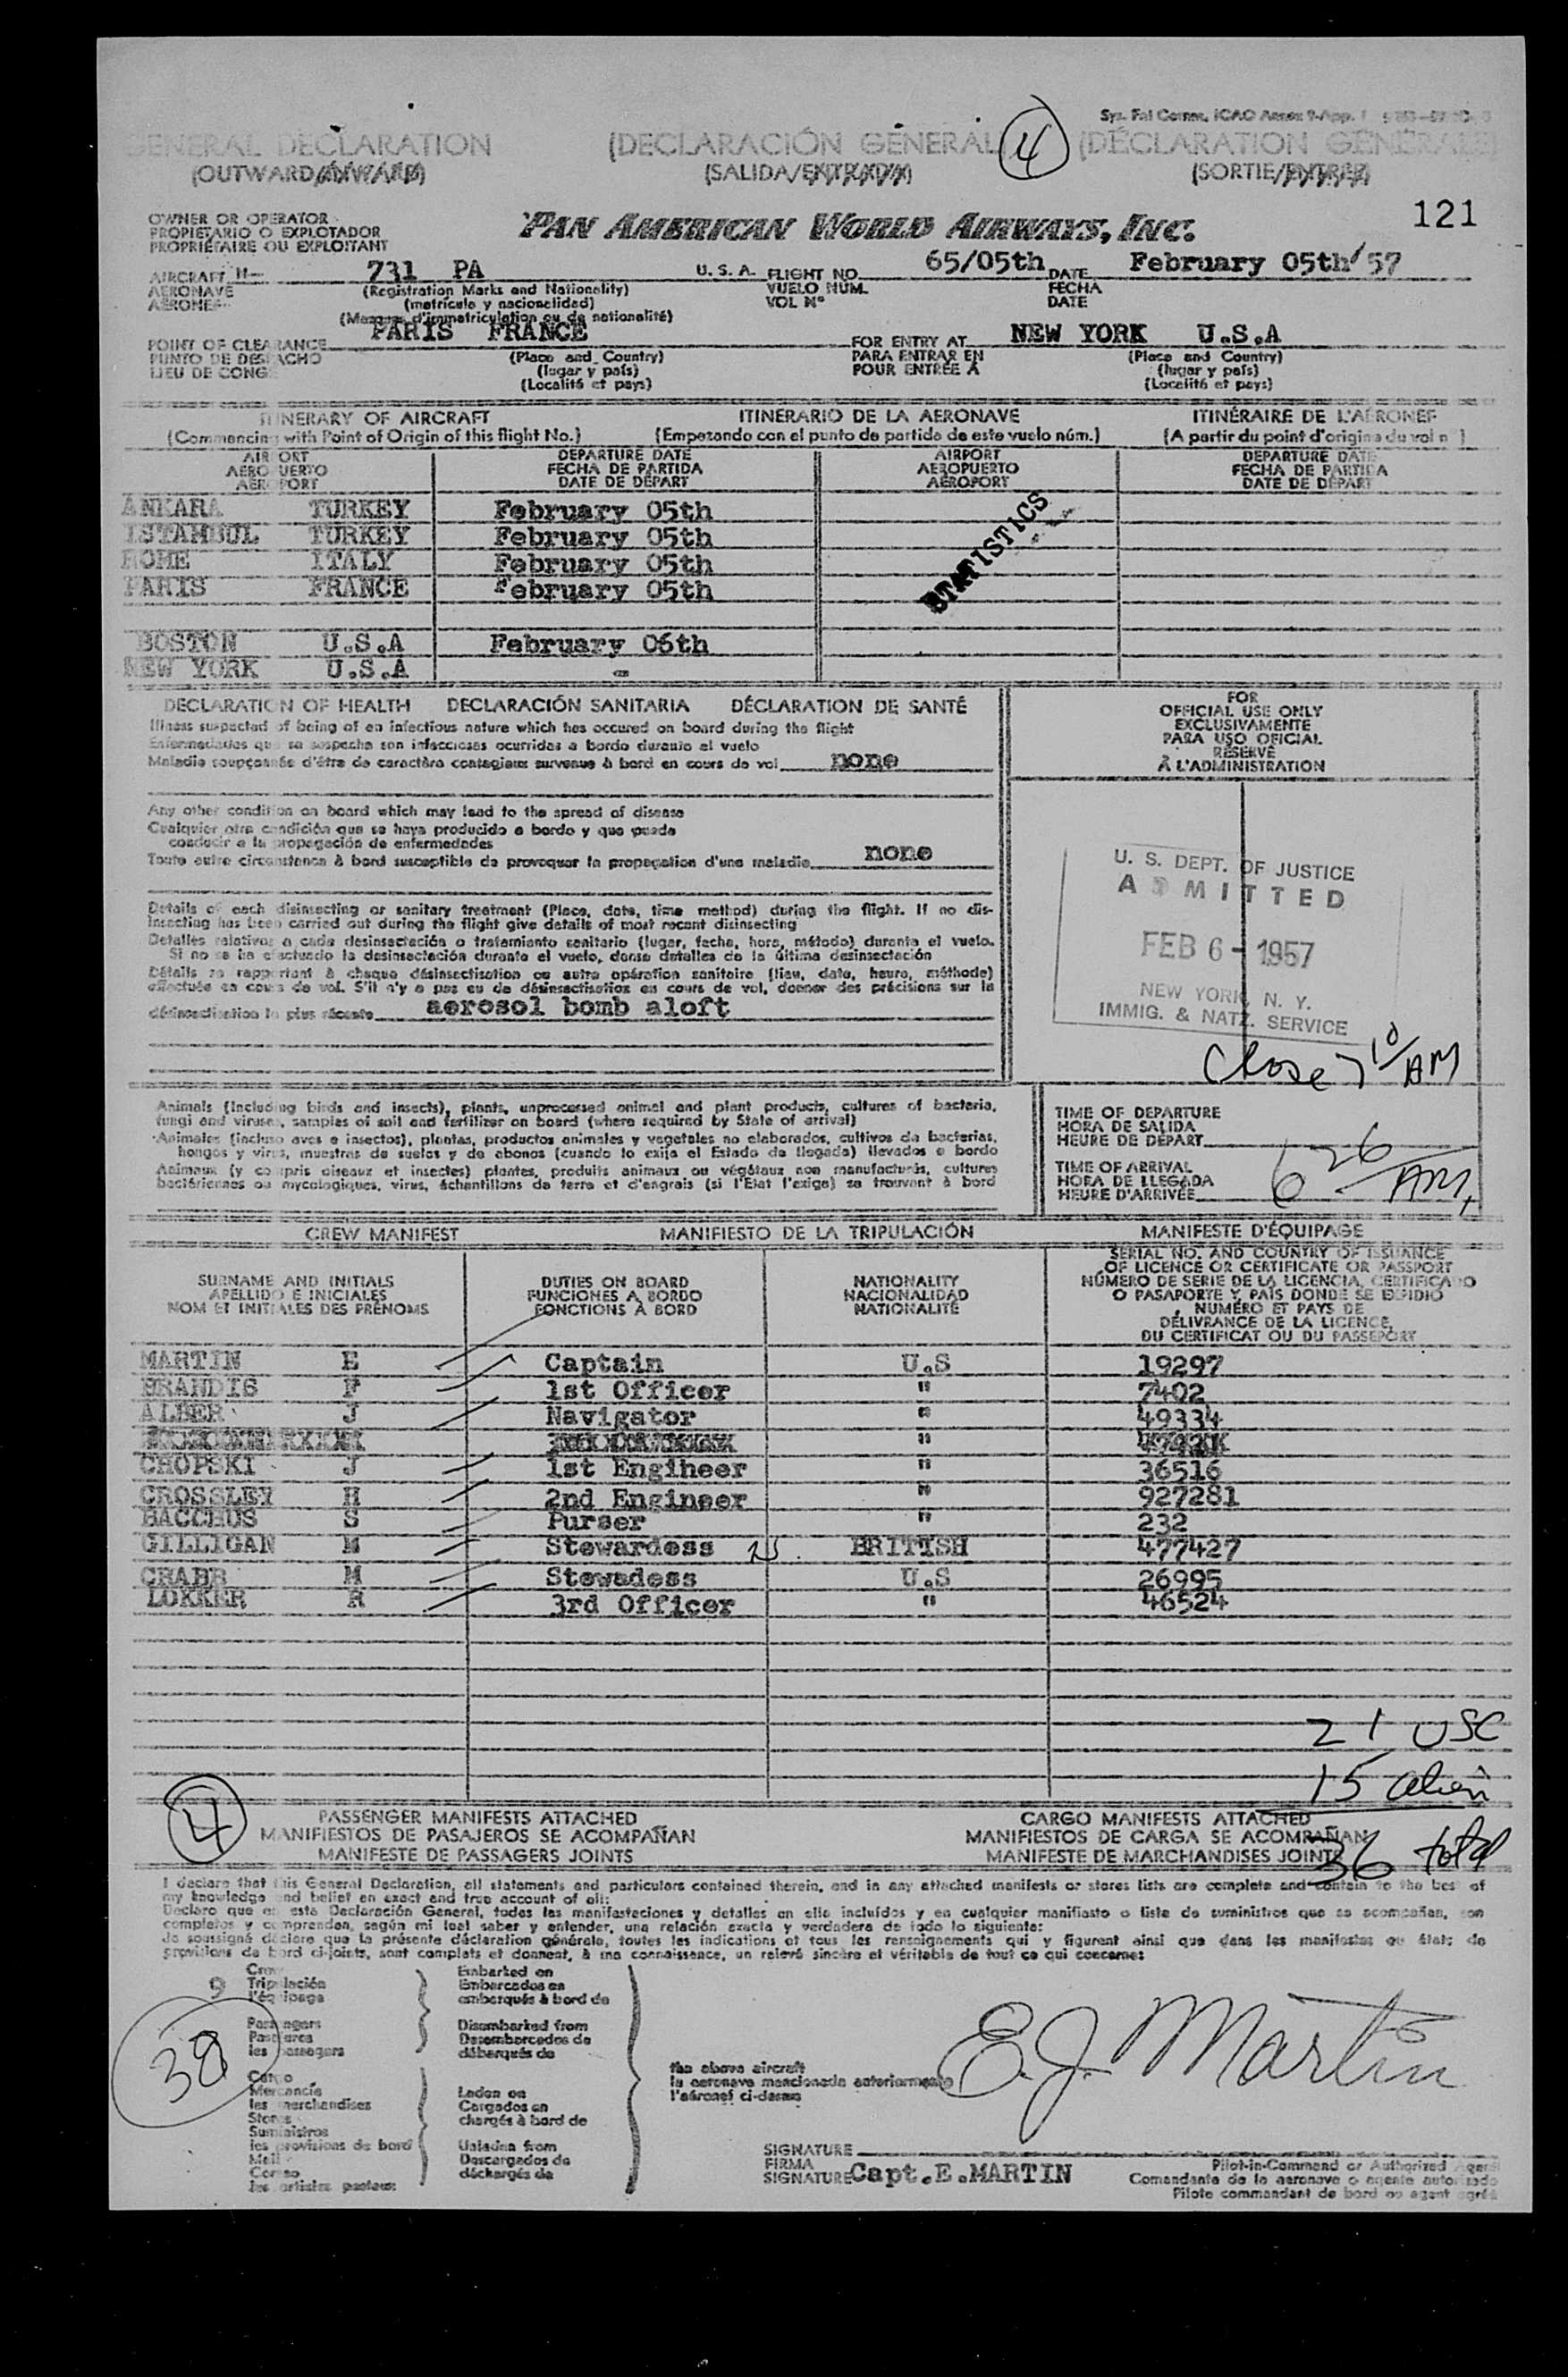 Sys. Fal Comm. ICAO Annex 9-App. 1
4
GENERAL DECLARATION (DECLARACIÓN GENERAL) (DÉCLARATION GÉNÉRALE)
(OUTWARD/INWARD) (SALIDA/ENTRADA) (SORTIE/ENTRÉE)
OWNER OR OPERATOR
PROPIETARIO O EXPLOTADOR
PROPRIÉTAIRE OU EXPLOITANT
PAN AMERICAN WORLD AIRWAYS, INC.
121
AIRCRAFT N— 731 PA U. S. A. FLIGHT NO. 65/05th DATE February 05th/57
AERONAVE (Registration Marks and Nationality) VUELO NÚM. FECHA
AÉRONEF (matrícula y nacionalidad) VOL N° DATE
(Marques d'immatriculation ou de nationalité)
POINT OF CLEARANCE PARIS FRANCE FOR ENTRY AT NEW YORK U.S.A
PUNTO DE DESPACHO (Place and Country) PARA ENTRAR EN (Place and Country)
LIEU DE CONGÉ (lugar y país) POUR ENTRÉE À (lugar y país)
(Localité et pays) (Localité et pays)
ITINERARY OF AIRCRAFT ITINERARIO DE LA AERONAVE ITINÉRAIRE DE L'AÉRONEF
(Commencing with Point of Origin of this flight No.) (Empezando con el punto de partida de este vuelo núm.) (A partir du point d'origine du vol n°)
AIRPORT DEPARTURE DATE AIRPORT DEPARTURE DATE
AEROPUERTO FECHA DE PARTIDA AEROPUERTO FECHA DE PARTIDA
AÉROPORT DATE DE DÉPART AÉROPORT DATE DE DÉPART
ANKARA TURKEY February 05th
ISTAMBUL TURKEY February 05th
ROME ITALY February 05th
PARIS FRANCE February 05th
STATISTICS
BOSTON U.S.A February 06th
NEW YORK U.S.A -
DECLARATION OF HEALTH DECLARACIÓN SANITARIA DÉCLARATION DE SANTÉ
Illness suspected of being of an infectious nature which has occured on board during the flight
Enfermedades que se sospecha son infecciosas ocurridas a bordo durante el vuelo
Maladie soupçonnée d'être de caractère contagieux survenue à bord en cours de vol none
Any other condition on board which may lead to the spread of disease
Cualquier otra condición que se haya producido a bordo y que pueda
conducir a la propagación de enfermedades
Toute autre circonstance à bord susceptible de provoquer la propagation d'une maladie none
Details of each disinsecting or sanitary treatment (Place, date, time method) during the flight. If no dis-
insecting has been carried out during the flight give details of most recent disinsecting
Detalles relativos a cada desinsectación o tratamiento sanitario (lugar, fecha, hora, método) durante el vuelo.
Si no se ha efectuado la desinsectación durante el vuelo, dense detalles de la última desinsectación
Détails se rapportant à chaque désinsectisation ou autre opération sanitaire (lieu, date, heure, méthode)
effectuée en cours de vol. S'il n'y a pas eu de désinsectisation en cours de vol, donner des précisions sur la
désinsectisation la plus récente aerosol bomb aloft
FOR
OFFICIAL USE ONLY
EXCLUSIVAMENTE
PARA USO OFICIAL
RÉSERVÉ
À L'ADMINISTRATION
U. S. DEPT. OF JUSTICE
ADMITTED
FEB 6 - 1957
NEW YORK, N. Y.
IMMIG. & NATZ. SERVICE
Close 7 10 AM
Animals (including birds and insects), plants, unprocessed animal and plant products, cultures of bacteria,
fungi and viruses, samples of soil and fertilizer on board (where required by State of arrival)
Animales (incluso aves e insectos), plantas, productos animales y vegetales no elaborados, cultivos de bacterias,
hongos y virus, muestras de suelos y de abonos (cuando lo exija el Estado de llegada) llevados a bordo
Animaux (y compris oiseaux et insectes) plantes, produits animaux ou végétaux non manufacturés, cultures
bactériennes ou mycologiques, virus, échantillons de terre et d'engrais (si l'Etat l'exige) se trouvant à bord
TIME OF DEPARTURE
HORA DE SALIDA
HEURE DE DÉPART
TIME OF ARRIVAL
HORA DE LLEGADA
HEURE D'ARRIVÉE 6 26 AM
CREW MANIFEST MANIFIESTO DE LA TRIPULACIÓN MANIFESTE D'ÉQUIPAGE
SURNAME AND INITIALS
APELLIDO E INICIALES
NOM ET INITIALES DES PRÉNOMS
DUTIES ON BOARD
FUNCIONES A BORDO
FONCTIONS À BORD
NATIONALITY
NACIONALIDAD
NATIONALITÉ
SERIAL NO. AND COUNTRY OF ISSUANCE
OF LICENCE OR CERTIFICATE OR PASSPORT
NÚMERO DE SERIE DE LA LICENCIA, CERTIFICADO
O PASAPORTE Y PAÍS DONDE SE EXPIDIÓ
NUMÉRO ET PAYS DE
DÉLIVRANCE DE LA LICENCE,
DU CERTIFICAT OU DU PASSEPORT
MARTIN E Captain U.S 19297
BRANDIS F 1st Officer " 7402
ALBER J Navigator " 49334
"
CHOPSKI J 1st Engiheer " 36516
CROSSLEY H 2nd Engineer " 927281
BACCHUS S Purser " 232
GILLIGAN M Stewardess BRITISH 477427
CRABB M Stewadess U.S 26995
LOKKER R 3rd Officer " 46524
21 USC
15 alien
36 total
4
PASSENGER MANIFESTS ATTACHED CARGO MANIFESTS ATTACHED
MANIFIESTOS DE PASAJEROS SE ACOMPAÑAN MANIFIESTOS DE CARGA SE ACOMPAÑAN
MANIFESTE DE PASSAGERS JOINTS MANIFESTE DE MARCHANDISES JOINTS
I declare that this General Declaration, all statements and particulars contained therein, and in any attached manifests or stores lists are complete and contain to the best of
my knowledge and belief an exact and true account of all:
Declaro que en esta Declaración General, todas las manifestaciones y detalles en ella incluídos y en cualquier manifiesto o lista de suministros que se acompañan, son
completos y comprenden, según mi leal saber y entender, una relación exacta y verdadera de todo lo siguiente:
Je soussigné déclare que la présente déclaration générale, toutes les indications et tous les renseignements qui y figurent ainsi que dans les manifestes ou états de
provisions de bord ci-joints, sont complets et donnent, à ma connaissance, un relevé sincère et véritable de tout ce qui concerne:
9
Crew
Tripulación
l'équipage
Embarked on
Embarcados en
embarqués à bord de
38
Passengers
Pasajeros
les passagers
Disembarked from
Desembarcados de
débarqués de
Cargo
Mercancía
les marchandises
Stores
Suministros
les provisions de bord
Mail
Correo
les articles postaux
Laden on
Cargados en
chargés à bord de
Unladen from
Descargados de
déchargés de
the above aircraft
la aeronave mencionada anteriormente
l'aéronef ci-dessus
E. J. Martin
SIGNATURE
FIRMA
SIGNATURE Capt.E.MARTIN
Pilot-in-Command or Authorized Agent
Comandante de la aeronave o agente autorizado
Pilote commandant de bord ou agent agréé